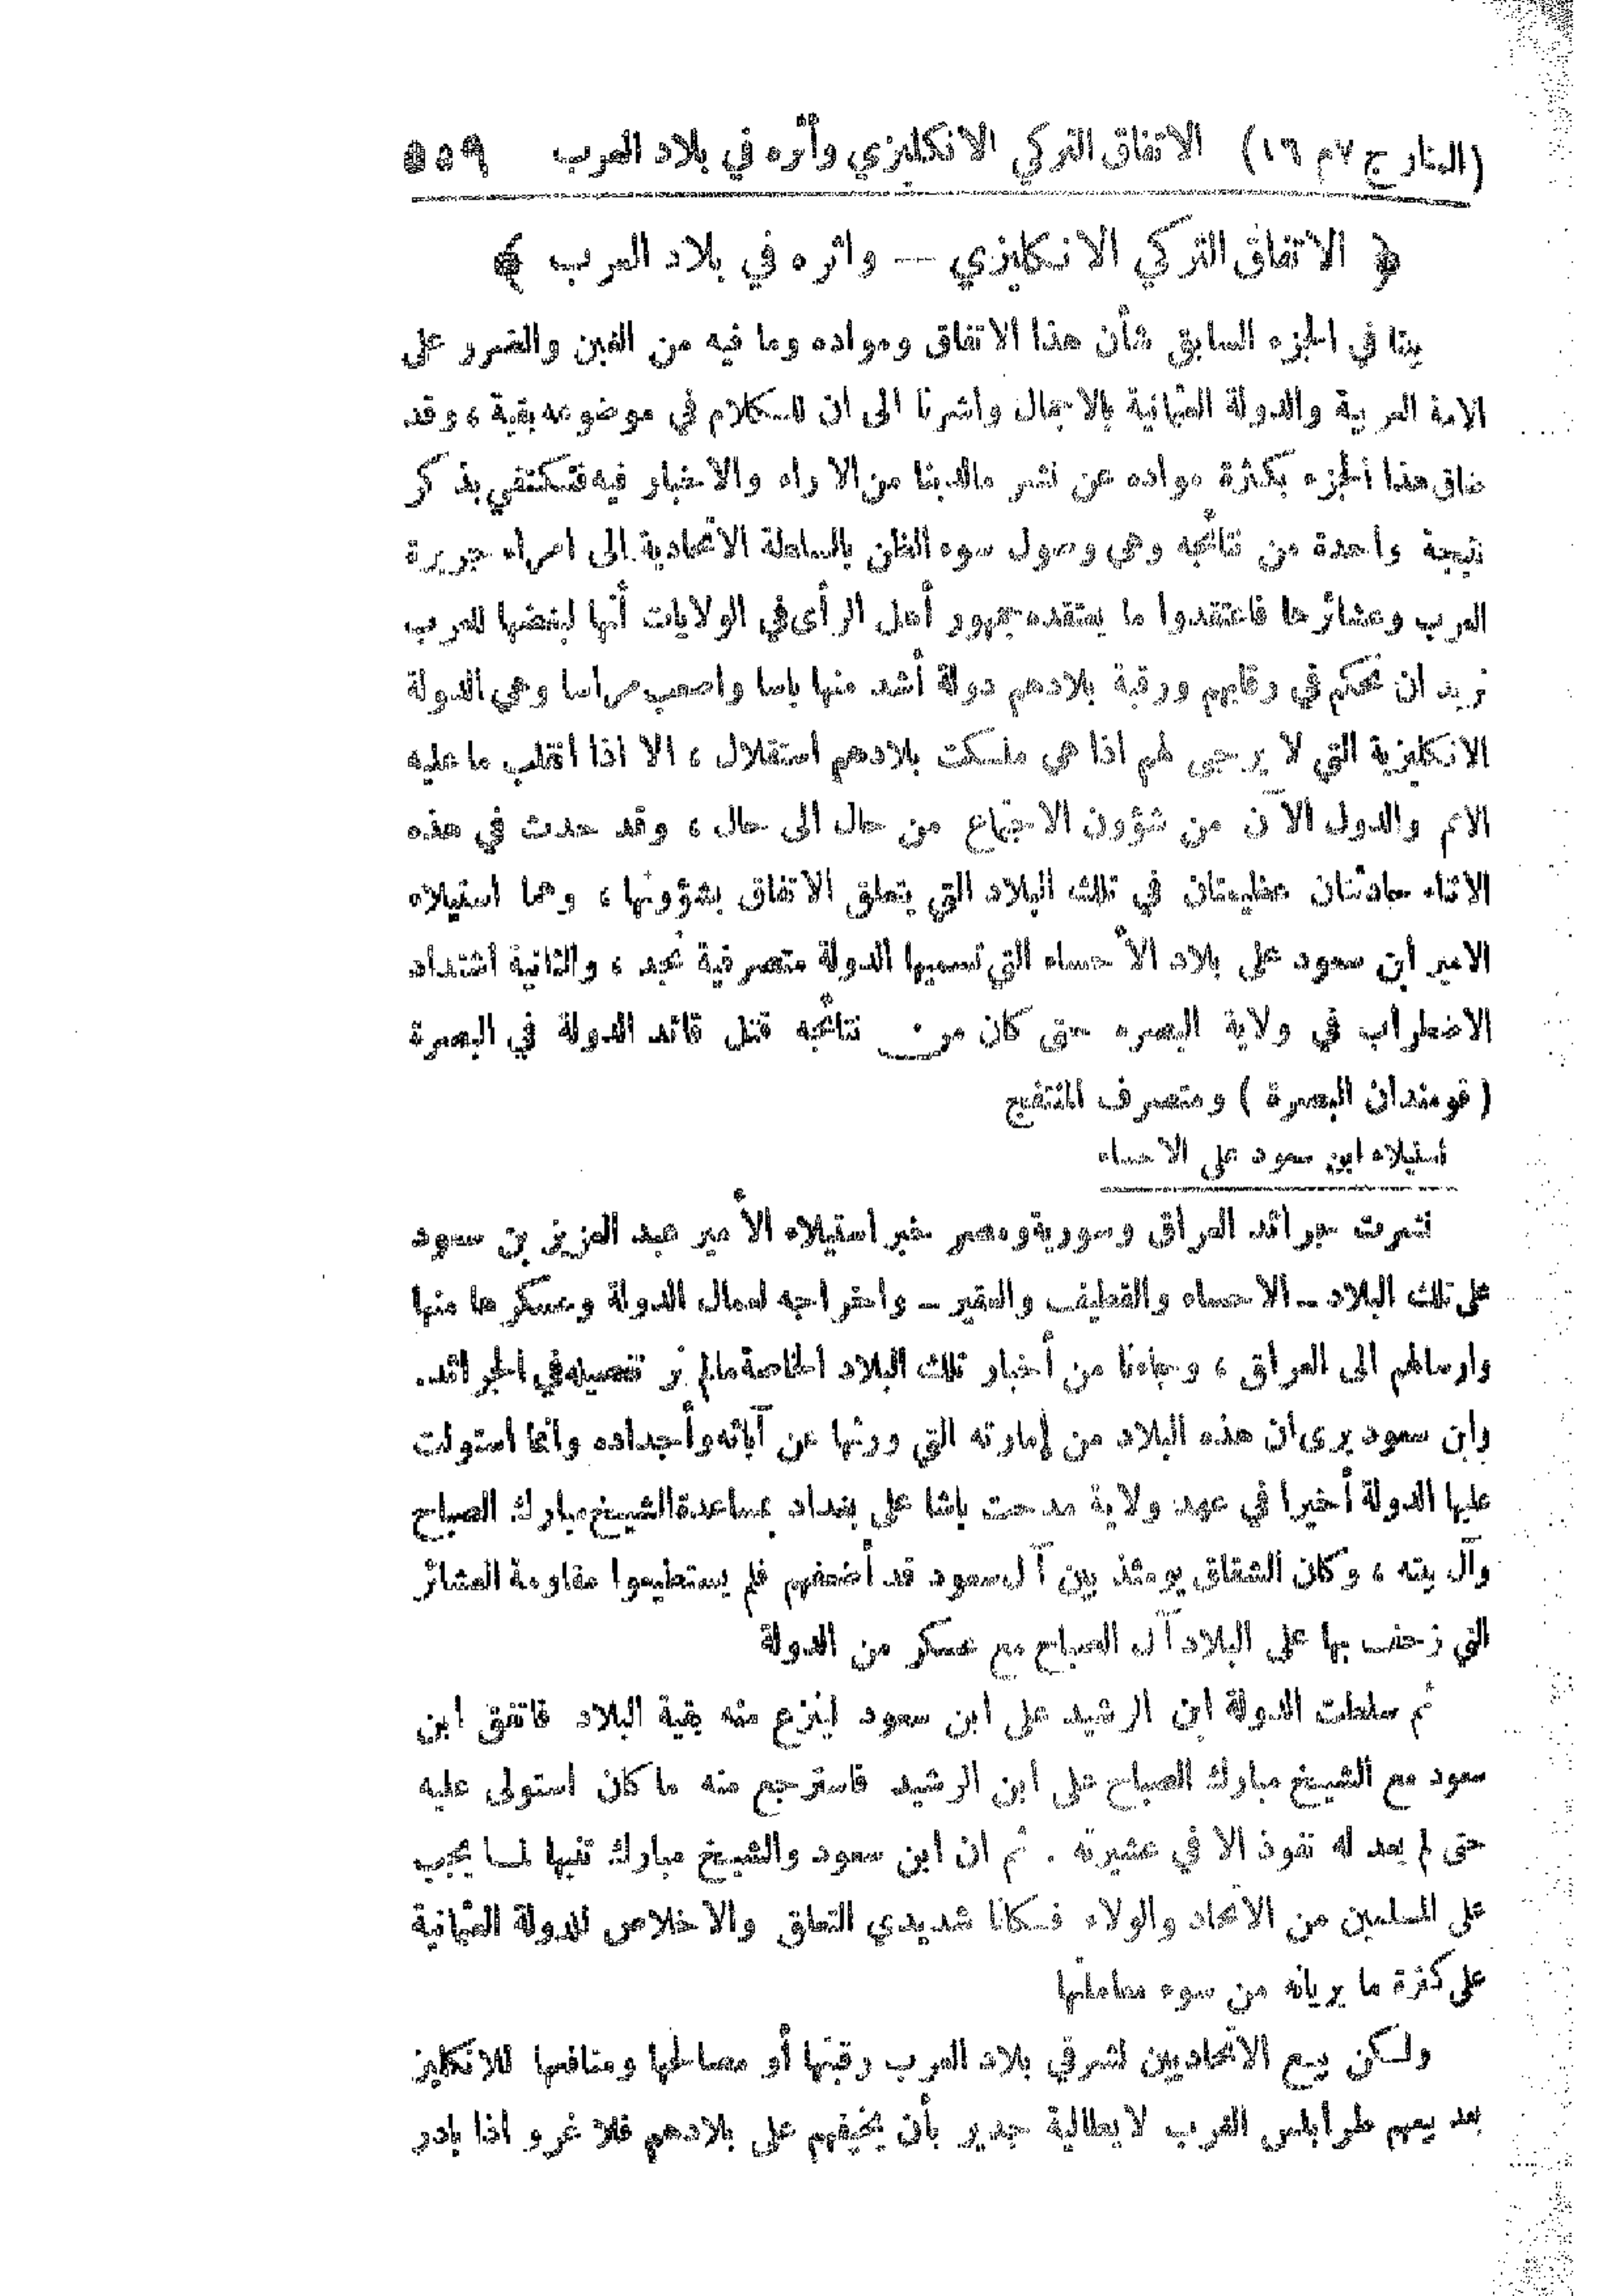 (المنار ج ٧ م ١٦) الاتفاق التركي الانكليزي وأثره في بلاد العرب ٥٥٩
﴿ الاتفاق التركي الانكليزي -- واثره في بلاد العرب ﴾
بينا في الجزء السابق شأن هذا الاتفاق ومواده وما فيه من الغبن والضرر على
الامة العربية والدولة العثمانية بالاجمال واشرنا الى ان للكلام في موضوعه بقية ، وقد
ضاق هذا الجزء بكثرة مواده عن نشر مالدينا من الاراء والاخبار فيه فنكتفي بذكر
نتيجة واحدة من نتائجه وهي وصول سوء الظن بالسلطة الاتحادية الى امراء جزيرة
العرب وعشائرها فاعتقدوا ما يعتقده جمهور أهل الرأى في الولايات أنها لبغضها للعرب
تريد ان تحكم في رقابهم ورقبة بلادهم دولة أشد منها باسا واصعب مراسا وهي الدولة
الانكليزية التي لا يرجى لهم اذا هي ملكت بلادهم استقلال ، الا اذا انقلب ما عليه
الامم والدول الآن من شؤون الاجتماع من حال الى حال ، وقد حدث في هذه
الاثناء حادثتان عظيمتان في تلك البلاد التي يتعلق الاتفاق بشؤونها ، وهما استيلاء
الامير ابن سعود على بلاد الأحساء التي تسميها الدولة متصرفية نجد ، والثانية اشتداد
الاضطراب في ولاية البصره حتى كان من نتائجه قتل قائد الدولة في البصرة
( قومندان البصرة ) ومتصرف المنتفج
استيلاء ابن سعود على الاحساء
نشرت جرائد العراق وسورية ومصر خبر استيلاء الأمير عبد العزيز بن سعود
على تلك البلاد ــ الاحساء والقطيف والعقير ــ واخراجه لعمال الدولة وعسكرها منها
وارسالهم الى العراق ، وجاءنا من أخبار تلك البلاد الخاصة مالم نر تفصيله في الجرائد.
وابن سعود يرى ان هذه البلاد من إمارته التي ورثها عن آبائه وأجداده وانما استولت
عليها الدولة أخيرا في عهد ولاية مدحت باشا على بغداد بمساعدة الشيخ مبارك الصباح
وآل بيته ، وكان الشقاق يومئذ بين آل سعود قد أضعفهم فلم يستطيعوا مقاومة العشائر
التي زحف بها على البلاد آل الصباح مع عسكر من الدولة
ثم سلطت الدولة ابن الرشيد على ابن سعود لينزع منه بقية البلاد فاتفق ابن
سعود مع الشيخ مبارك الصباح على ابن الرشيد فاسترجع منه ما كان استولى عليه
حتى لم يعد له نفوذ الا في عشيرته . ثم ان ابن سعود والشيخ مبارك تنبها لما يجب
على المسلمين من الاتحاد والولاء فكانا شديدي التعلق والاخلاص للدولة العثمانية
على كثرة ما يريانه من سوء معاملتها
ولكن بيع الاتحاديين لشرقي بلاد العرب رقبتها أو مصالحها ومنافعها للانكليز
بعد بيعهم طرابلس الغرب لايطالية جدير بأن يخيفهم على بلادهم فلا غرو اذا بادر